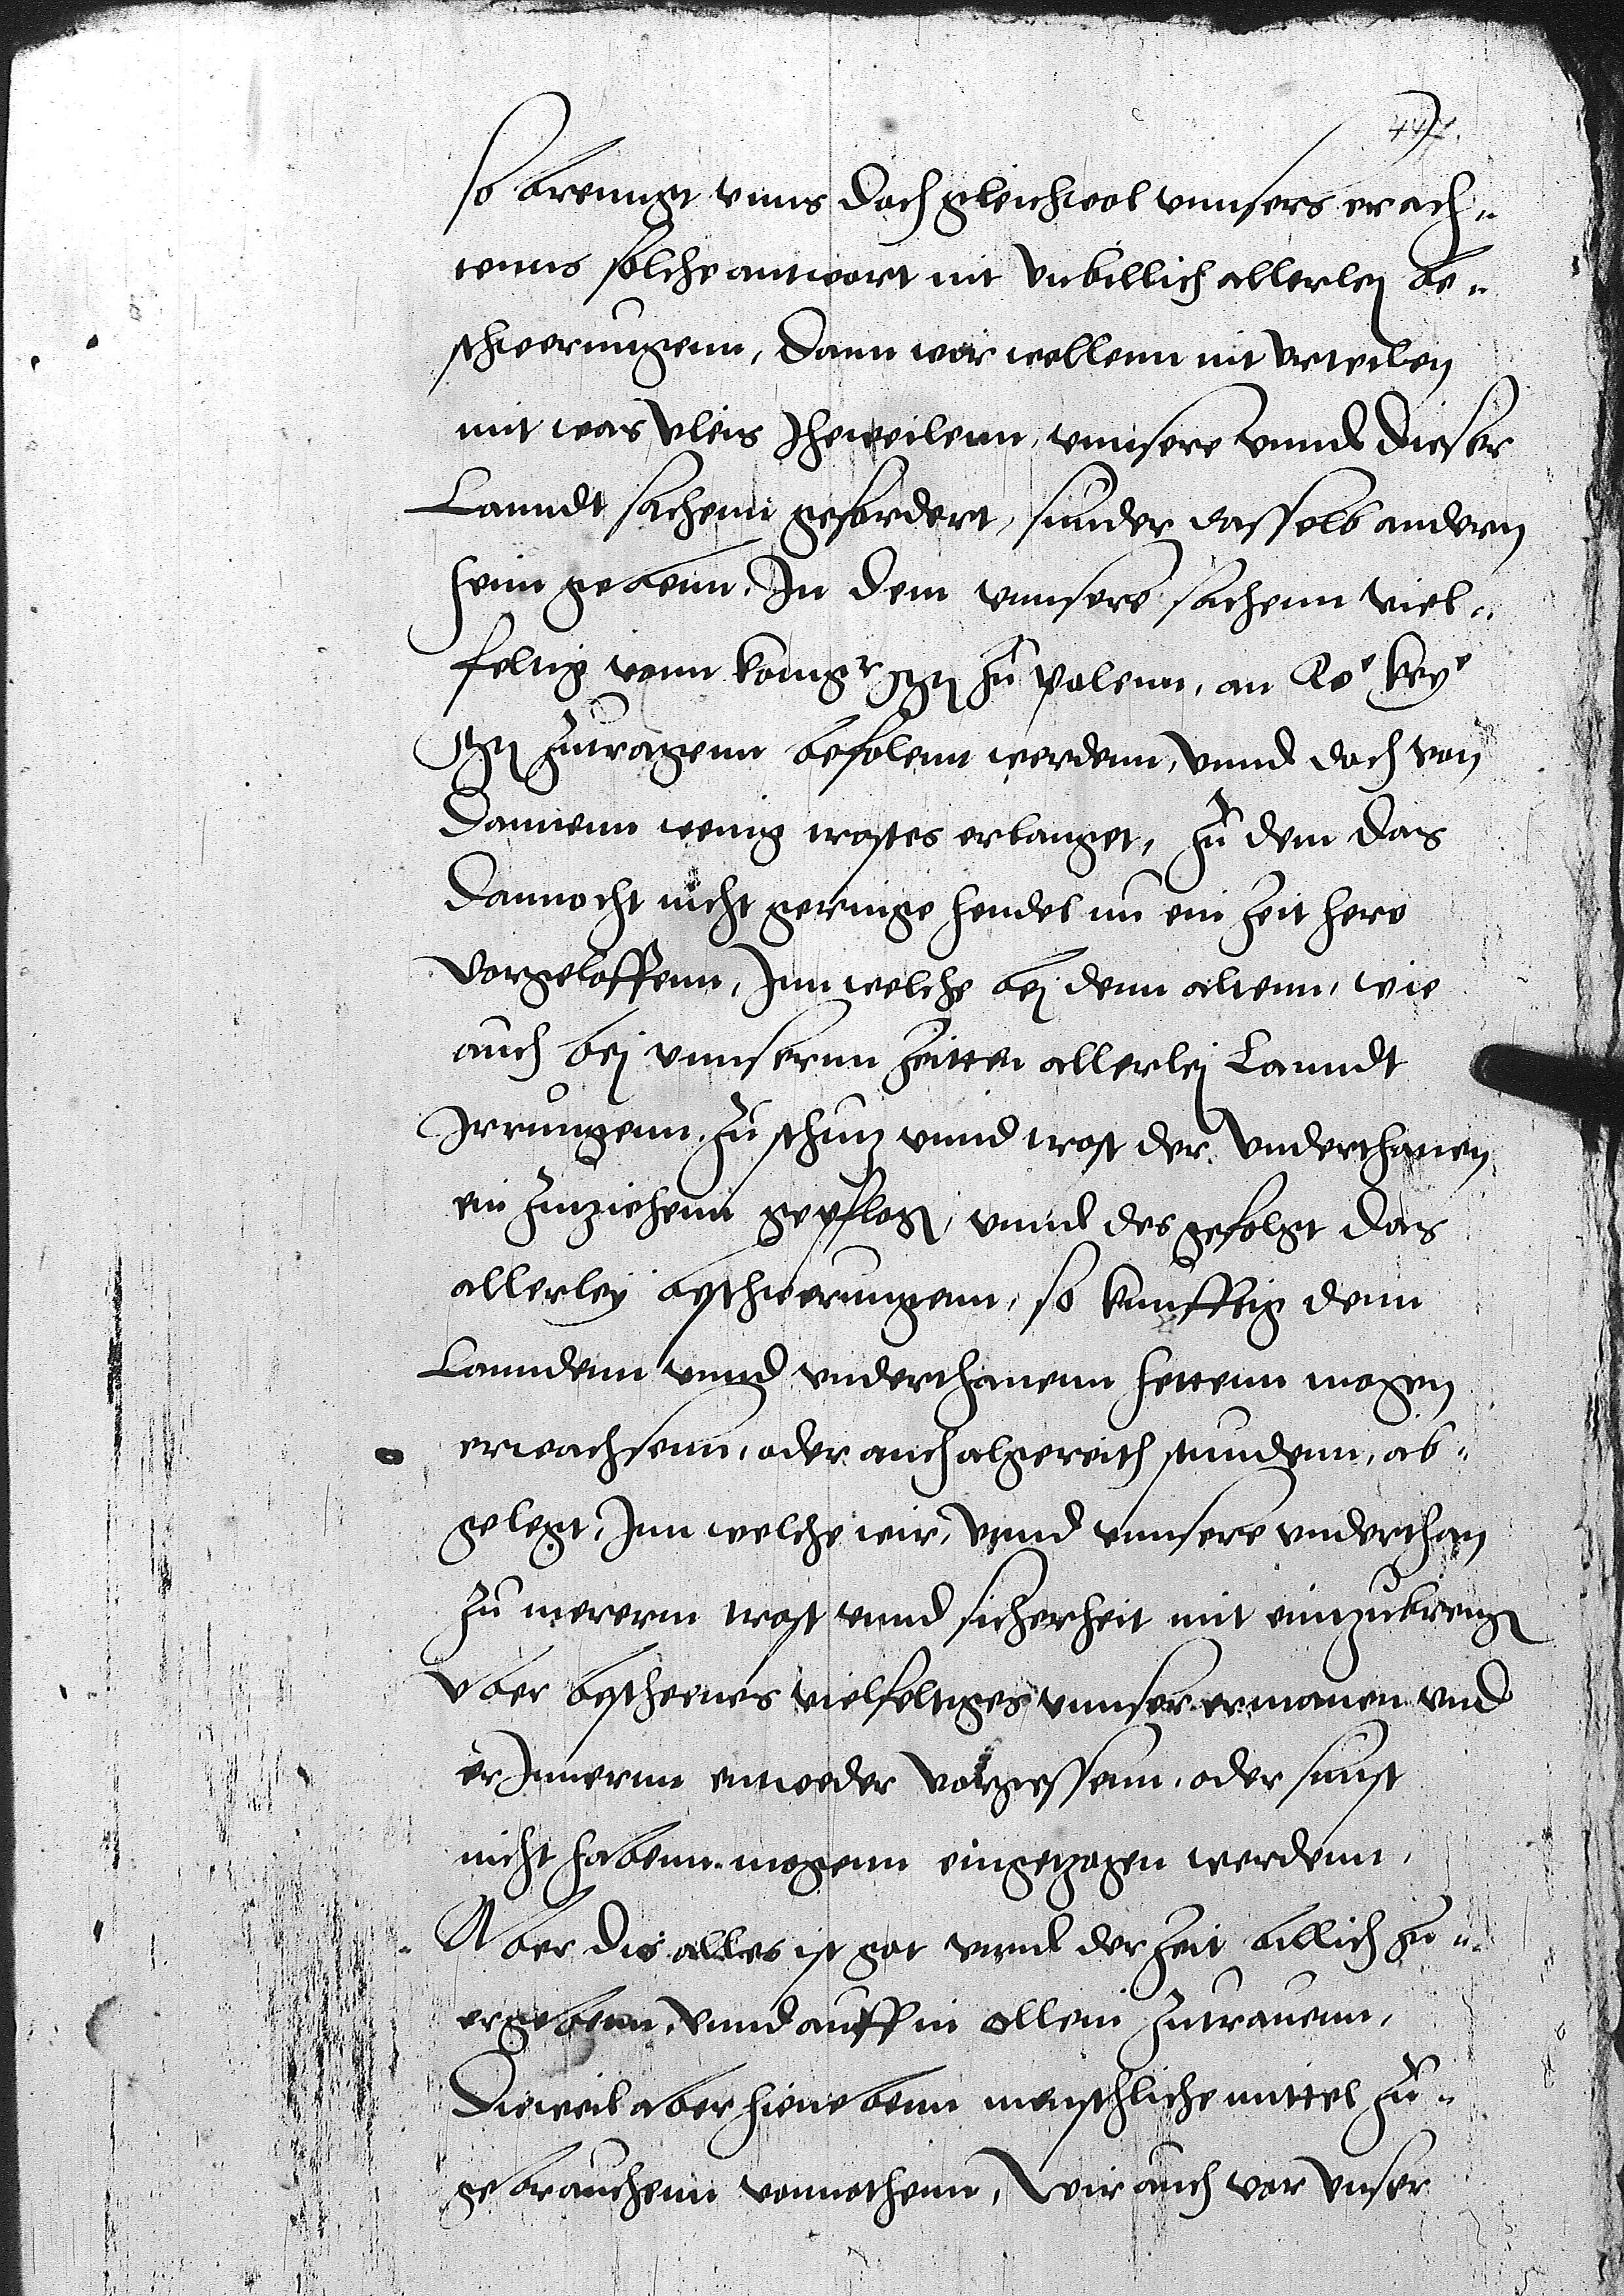 447.
so brenngt vnns doch gleichwol vnnsers erach„
tenns solche antwort nit vnbillich allerley be„
schwerungenn, Dann wir wollenn nit vrteilen
mit was vleis Jheweilenn, vnnsere vnnd dieser
Lanndt sachenn gefordert, sunder dasselb andern
heim gebenn. In dem vnnsere sachenn viel„
feltig vonn konigr Mt zu Polenn, an Ro Key
Mt zutragenn befolenn werdenn, vnnd doch von
dannenn wenig trostes erlanget, zu dem das
dannocht nicht geringe hendel nu ein zeit here
vorgeloffenn, Inn welche bej denn altenn, wie
auch bej vnnsernn zeitten allerlej Lanndt
Irrungenn zu schutz vnnd trost der vnderthanen
ein zuziehenn gepflogen, vnnd des gefolgt das
allerley beschwerungenn, so kunfftig denn
Lanndenn vnnd vnderthanenn hettenn mogen
erwachsenn, oder auch albereith stundenn, ab„
gelegt, Inn welche wir, vnnd vnnsere vnderthan
zu mererm trost vnnd sicherheit mit einzubrengen
vber bescheenes vielfeltiges vnnser ermanen vnd
erJnnernn entweder vorgessenn, oder sunst
nicht habenn mogenn eingetzogen werdenn,
Aber dis alles ist got vnnd der zeit billich zu„
ergebenn, vnnd auff in allein zutrauenn,
Dieweil aber hienebenn menschliche mittel zu„
gebrauchenn vonnothenn, Wir auch vor vnser